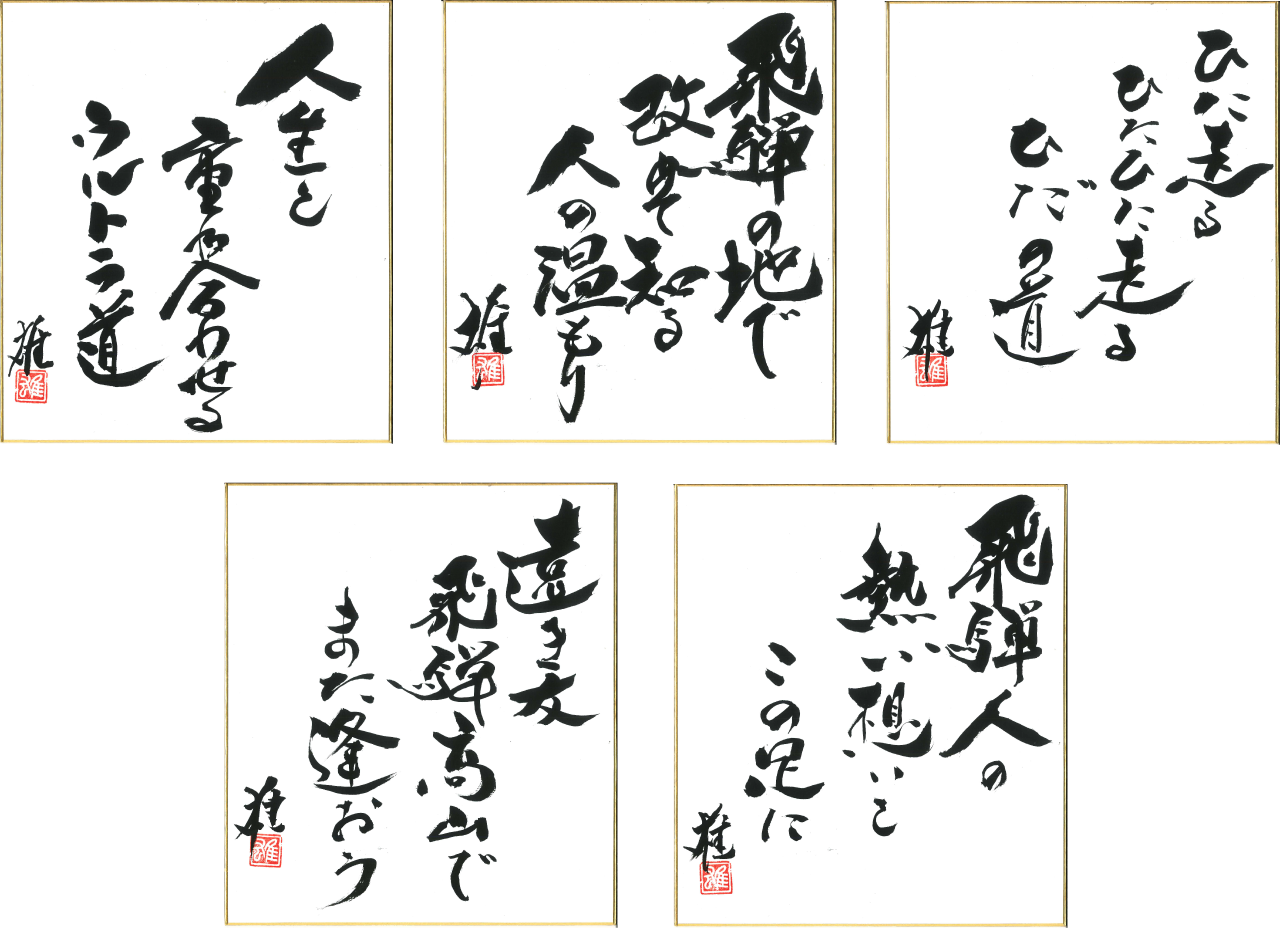 ひた走る
ひたひた走る
ひだの道
雄
雄
飛騨の地で
改めて知る
人の温もり
雄
雄
人生と
重ね合わせる
ウルトラ道
雄
雄
飛騨人の
熱い想いを
この足に
雄
雄
遠き友
飛騨高山で
また逢おう
雄
雄